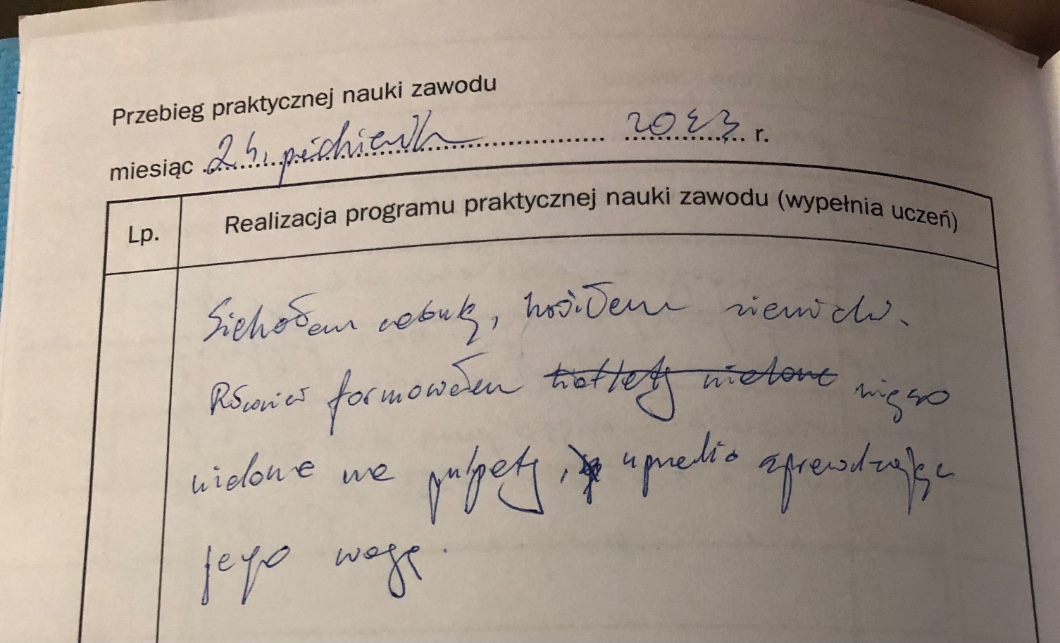 Przebieg praktycznej nauki zawodu
miesiąc 24. październik 2023 r.
Lp. Realizacja programu praktycznej nauki zawodu (wypełnia uczeń)
Siekałem cebulę, kroiłem ziemniaki.
Również formowałem kotlety mielone mięso
mielone na pulpety, uprzednio sprawdzając
jego wagę.